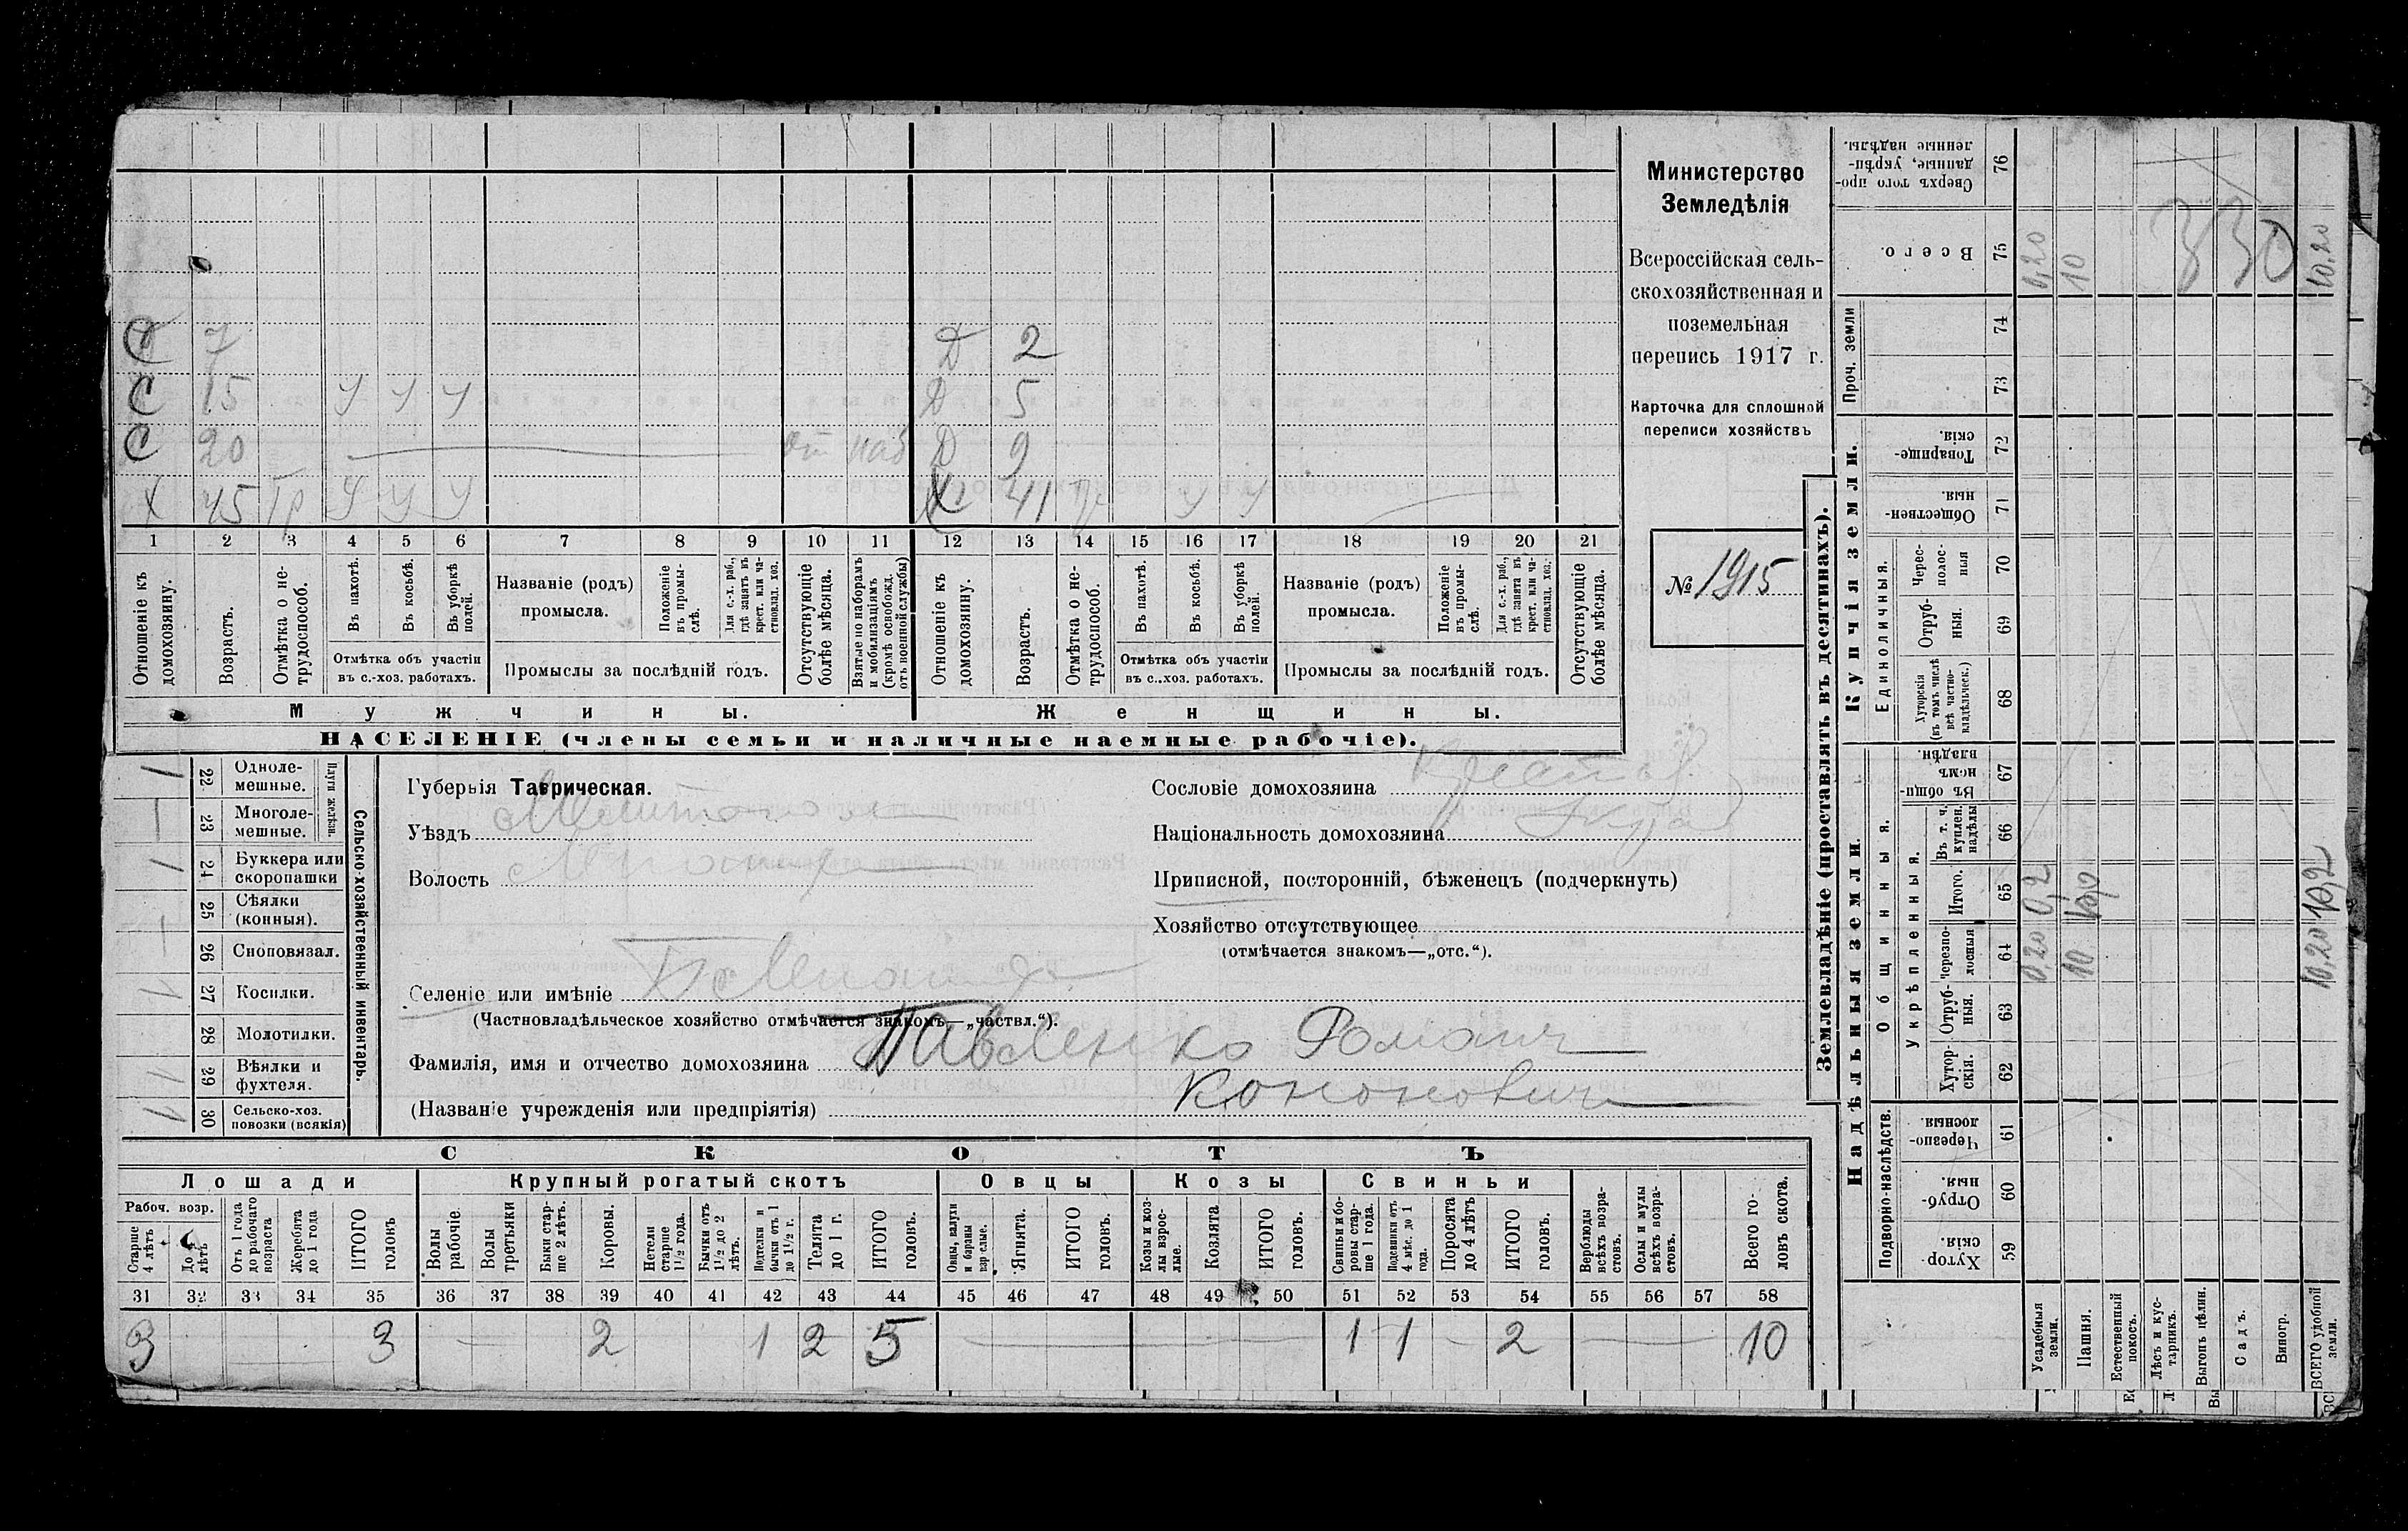 С 7 Д 2
С 15 У У У Д 5
С 20 от наб Д 9
Х 45 Тр У У У 41 У У
1 2 3 4 5 6 7 8 9 10 11 12 13 14 15 16 17 18 19 20 21
Отношеніе къ домохозяину.
Возрастъ.
Отмѣтка о не-трудоспособ.
Въ пахотѣ.
Въ косьбѣ.
Въ уборкѣ полей.
Отмѣтка объ участіи
въ с.-хоз. работахъ.
Названіе (родъ)
промысла.
Положеніе въ промы-слѣ.
Для с.-х. раб., гдѣ занятъ въ крест. или ча-стновлад. хоз.
Промыслы за послѣдній годъ.
Отсутствующіе болѣе мѣсяца.
Взятые по наборамъ и мобилизаціямъ (кромѣ освобожд. отъ военной службы)
Отношеніе къ домохозяину.
Возрастъ.
Отмѣтка о не-трудоспособ.
Въ пахотѣ.
Въ косьбѣ.
Въ уборкѣ полей.
Отмѣтка объ участіи
въ с..хоз. работахъ.
Названіе (родъ)
промысла.
Положеніе въ промы-слѣ.
Для с.-х. раб., гдѣ занята въ крест. или ча-стновлад. хоз.
Промыслы за послѣдній годъ.
Отсутствующіе болѣе мѣсяца.
Мужчины.
Женщины.
НАСЕЛЕНІЕ (члены семьи и наличные наемные рабочіе).
Министерство
Земледѣлія
Всероссійская сель-
скохозяйственная и
поземельная
перепись 1917 г.
Карточка для сплошной
переписи хозяйствъ
№ 1915
Сельско-хозяйственный инвентарь.
Плуги желѣзн.
22 Одноле-мешные. 1
23 Многоле-мешные. —
24 Буккера или скоропашки 1
25 Сѣялки (конныя).
26 Сноповязал. —
27 Косилки. 1
28 Молотилки.
29 Вѣялки и фухтеля. 1
30 Сельско-хоз. повозки (всякія) 1
Губернія Таврическая.
Уѣздъ Мелитопол
Волость
Селеніе или имѣніе
(Частновладѣльческое хозяйство отмѣчается знакомъ—„частвл.“).
Фамилія, имя и отчество домохозяина Павленко Роман
(Названіе учрежденія или предпріятія) Кононович
Сословіе домохозяина
Національность домохозяина
Приписной, посторонній, бѣженецъ (подчеркнуть)
Хозяйство отсутствующее
(отмѣчается знакомъ—„отс.“).
СКОТЪ
Лошади Крупный рогатый скотъ Овцы Козы Свиньи
Рабоч. возр.
Старше 4 лѣтъ
До 4 лѣтъ
Отъ 1 года до рабочаго возраста
Жеребята до 1 года
ИТОГО головъ
Волы рабочіе.
Волы третьяки
Быки стар-ше 2 лѣтъ.
Коровы.
Нетели старше 1½ года.
Бычки отъ 1½ до 2 лѣтъ.
Подтелки и бычки отъ 1 до 1½ г.
Телята до 1 г.
ИТОГО головъ.
Овцы, валухи и бараны взрослые.
Ягнята.
ИТОГО головъ.
Козы и коз-лы взрос-лые.
Козлята.
ИТОГО головъ.
Свиньи и бо-ровы стар-ше 1 года.
Подсвинки отъ 4 мѣс. до 1 года.
Поросята до 4 лѣтъ
ИТОГО головъ.
Верблюды всѣхъ возра-стовъ.
Ослы и мулы всѣхъ возра-стовъ.
Всего го-ловъ скота.
31 32 33 34 35 36 37 38 39 40 41 42 43 44 45 46 47 48 49 50 51 52 53 54 55 56 57 58
3 3 — 2 1 2 5 — 1 1 — 2 — 10
Землевладѣніе (проставлять въ десятинахъ).
Купчія земли.
Надѣльныя земли.
Сверхъ того про-даные, укрѣп-ленные надѣлы. 76
Всего. 75 0,20 10 10.20
330
Проч. земли 74
73
Товарище-скія. 72
Обществен-ныя. 71
Единоличныя.
Черес-полос-ныя 70
Отруб-ныя. 69
Хуторскія (въ томъ числѣ всѣ частно-владѣльческ.) 68
Общинныя.
Въ общи-номъ владѣн. 67
Укрѣпленныя.
Въ т. ч. куплен. надѣлы 66
Итого. 65 0,2 10,2
Черезпо-лосныя 64 0,20 10 10,20
Отруб-ныя. 63
Хутор-скія. 62
Подворно-наслѣдств.
Черезпо-лосныя. 61
Отруб-ныя. 60
Хутор-скія. 59
Усадебныя земли.
Пашня.
Естественный покосъ.
Лѣсъ и кус-тарникъ.
Выгонъ цѣлин.
Садъ.
Виногр.
ВСЕГО удобной земли.